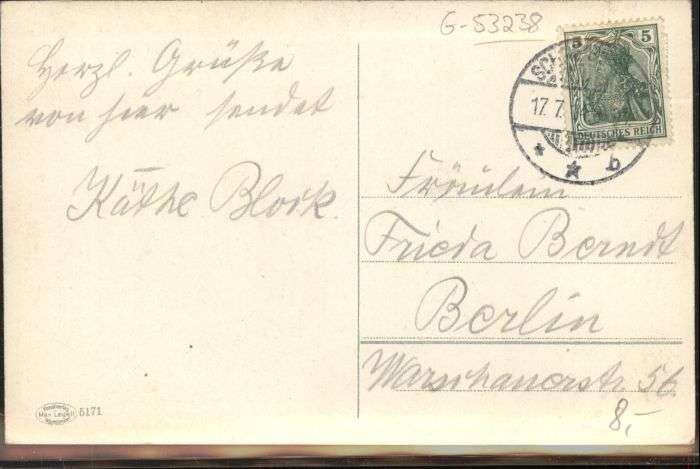 G-53238
Herzl. Grüße
von hier sendet
Käthe Block.
5 5
DEUTSCHES REICH
SCH
17.7.
* * b
Fräulein
Frieda Berndt
Berlin
Warschauerstr. 56.
8,-
5171